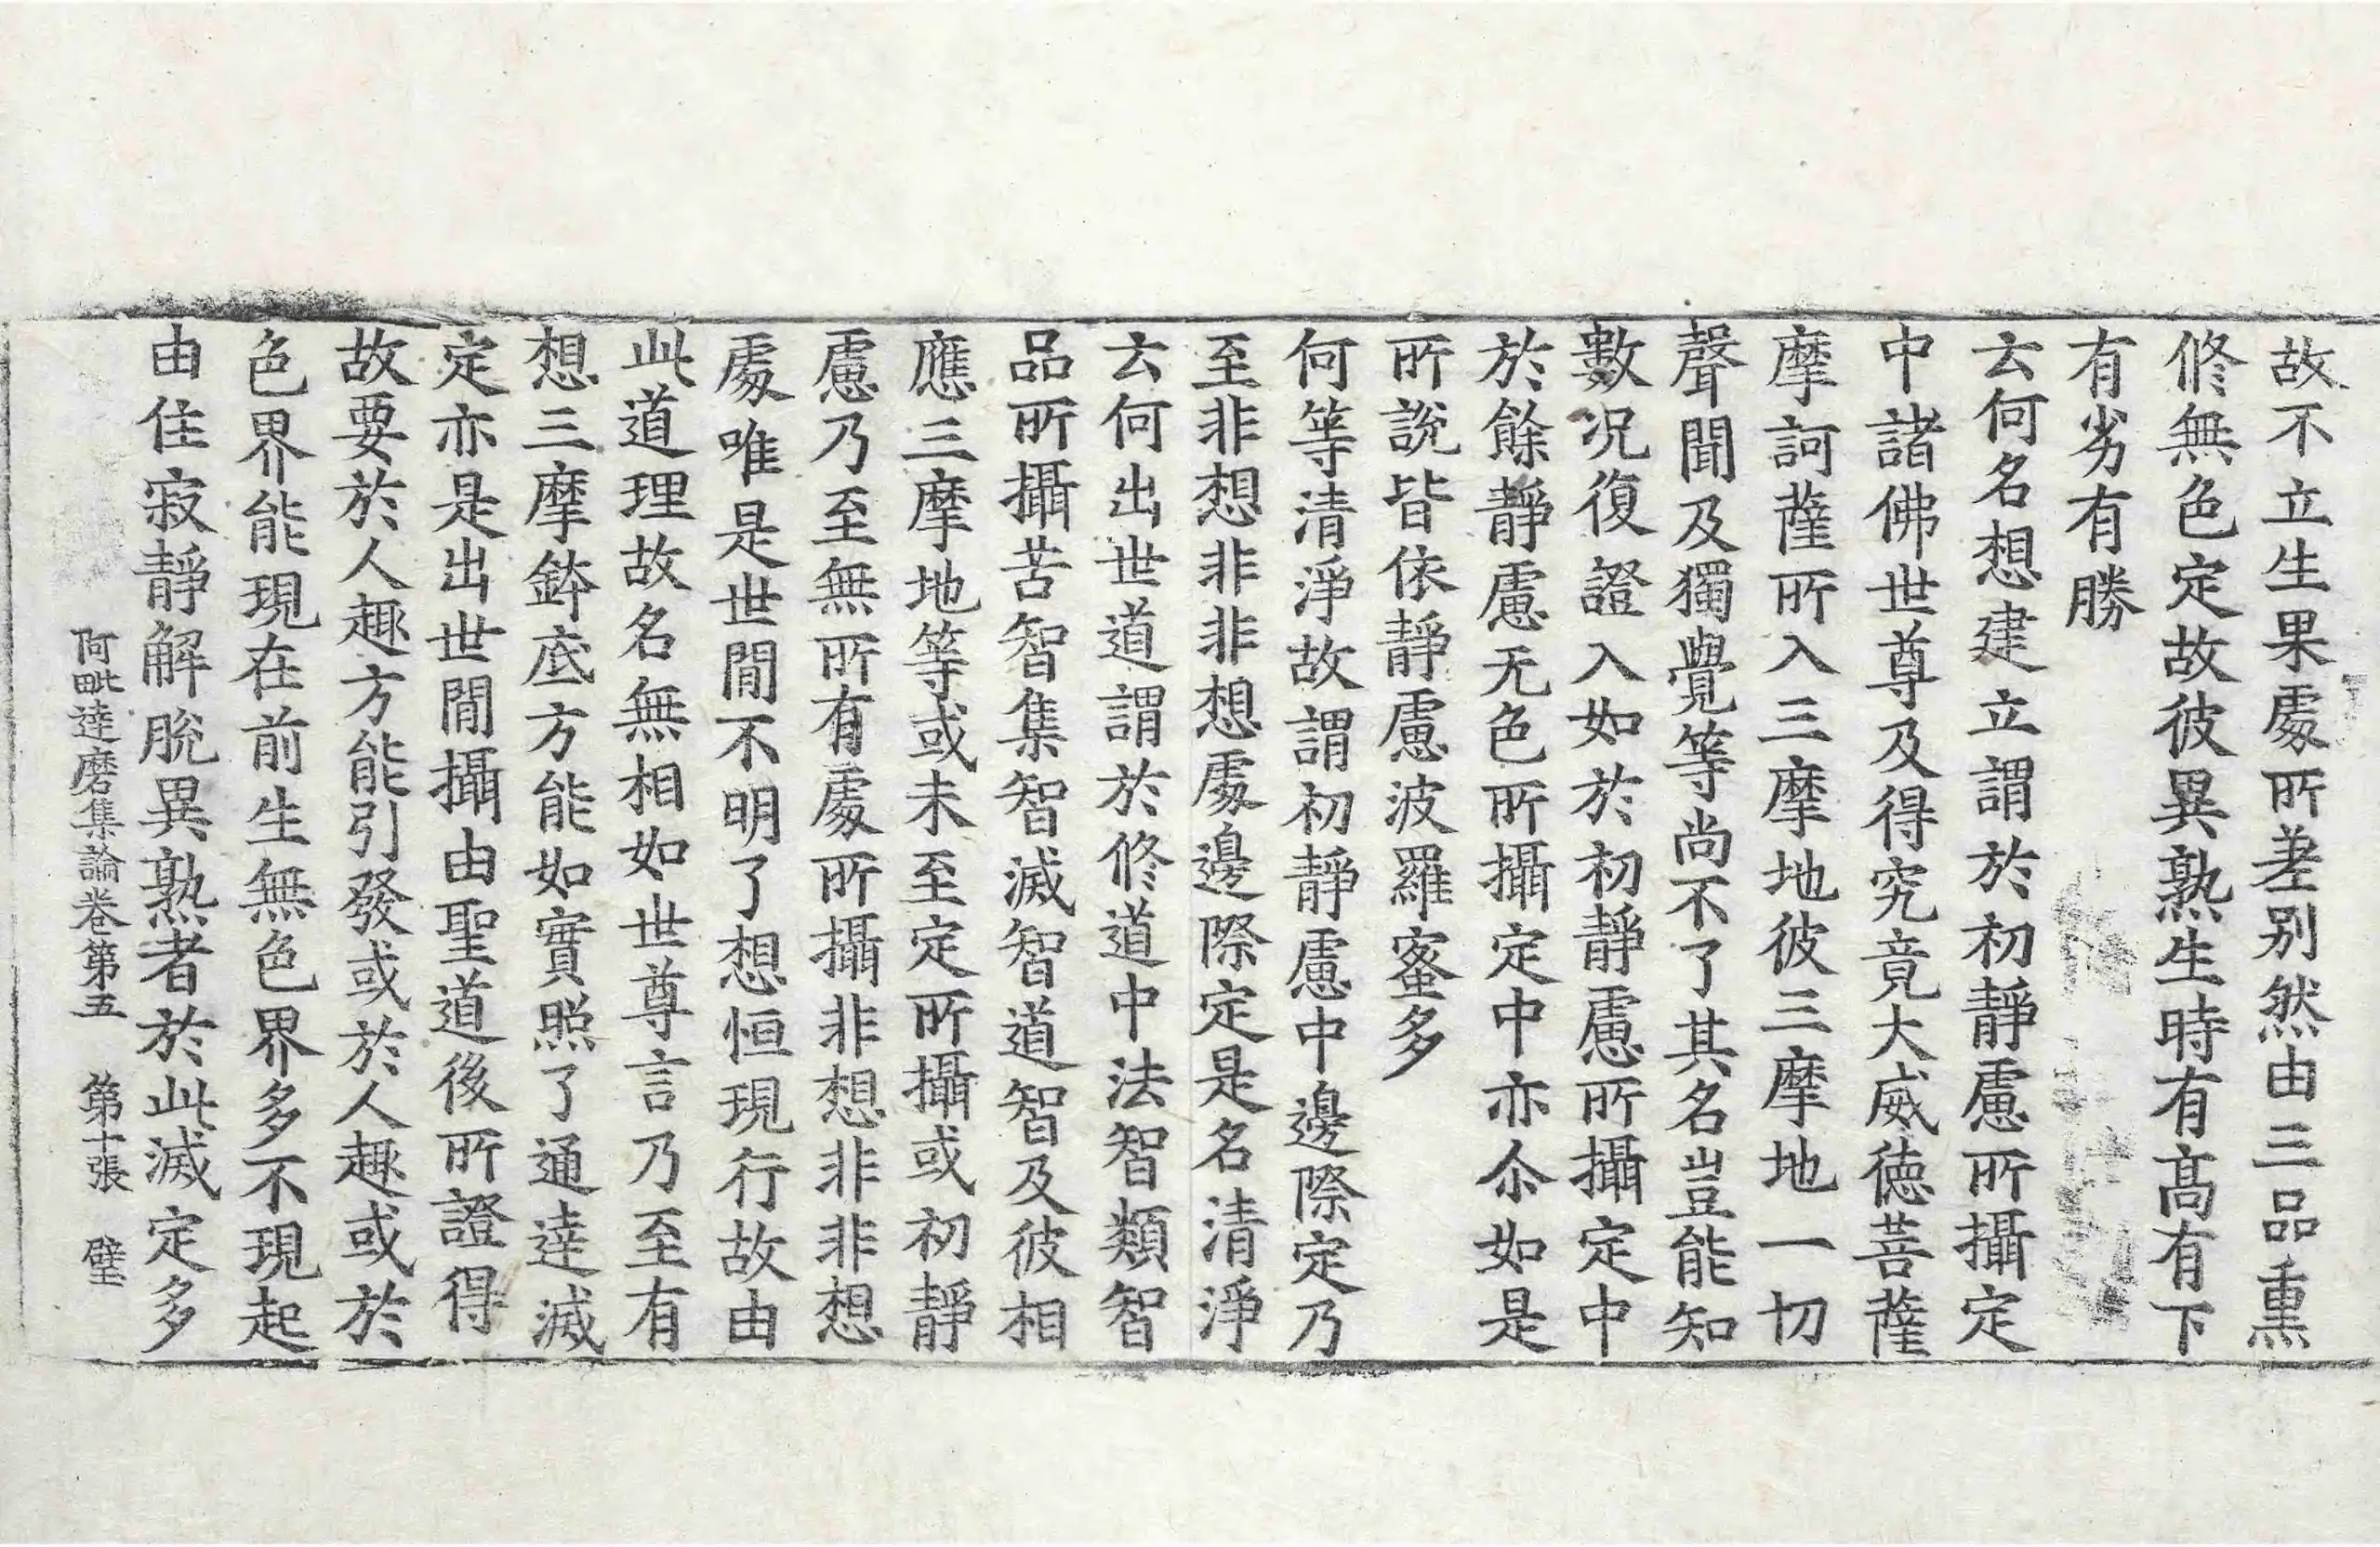 故不立生果處所差别然由三品熏
修無色定故彼異熟生時有髙有下
有劣有勝
云何名想建立謂於初靜慮所攝定
中諸佛世尊及得究竟大威德菩薩
摩訶薩所入三摩地彼三摩地一切
聲聞及獨覺等尚不了其名豈能知
數况復證入如於初靜慮所攝定中
於餘靜慮无色所攝定中亦尒如是
所說皆依靜慮波羅蜜多
何等清淨故謂初靜慮中邊際定乃
至非想非非想處邊際定是名清淨
云何出世道謂於修道中法智類智
品所攝苦智集智滅智道智及彼相
應三摩地等或未至定所攝或初靜
慮乃至無所有處所攝非想非非想
處唯是世間不明了想恒現行故由
此道理故名無相如世尊言乃至有
想三摩鉢底方能如實照了通達滅
定亦是出世間攝由聖道後所證得
故要於人趣方能引發或於人趣或於
色界能現在前生無色界多不現起
由住寂靜解脫異熟者於此滅定多
阿毗達磨集論卷第五 第十張 璧